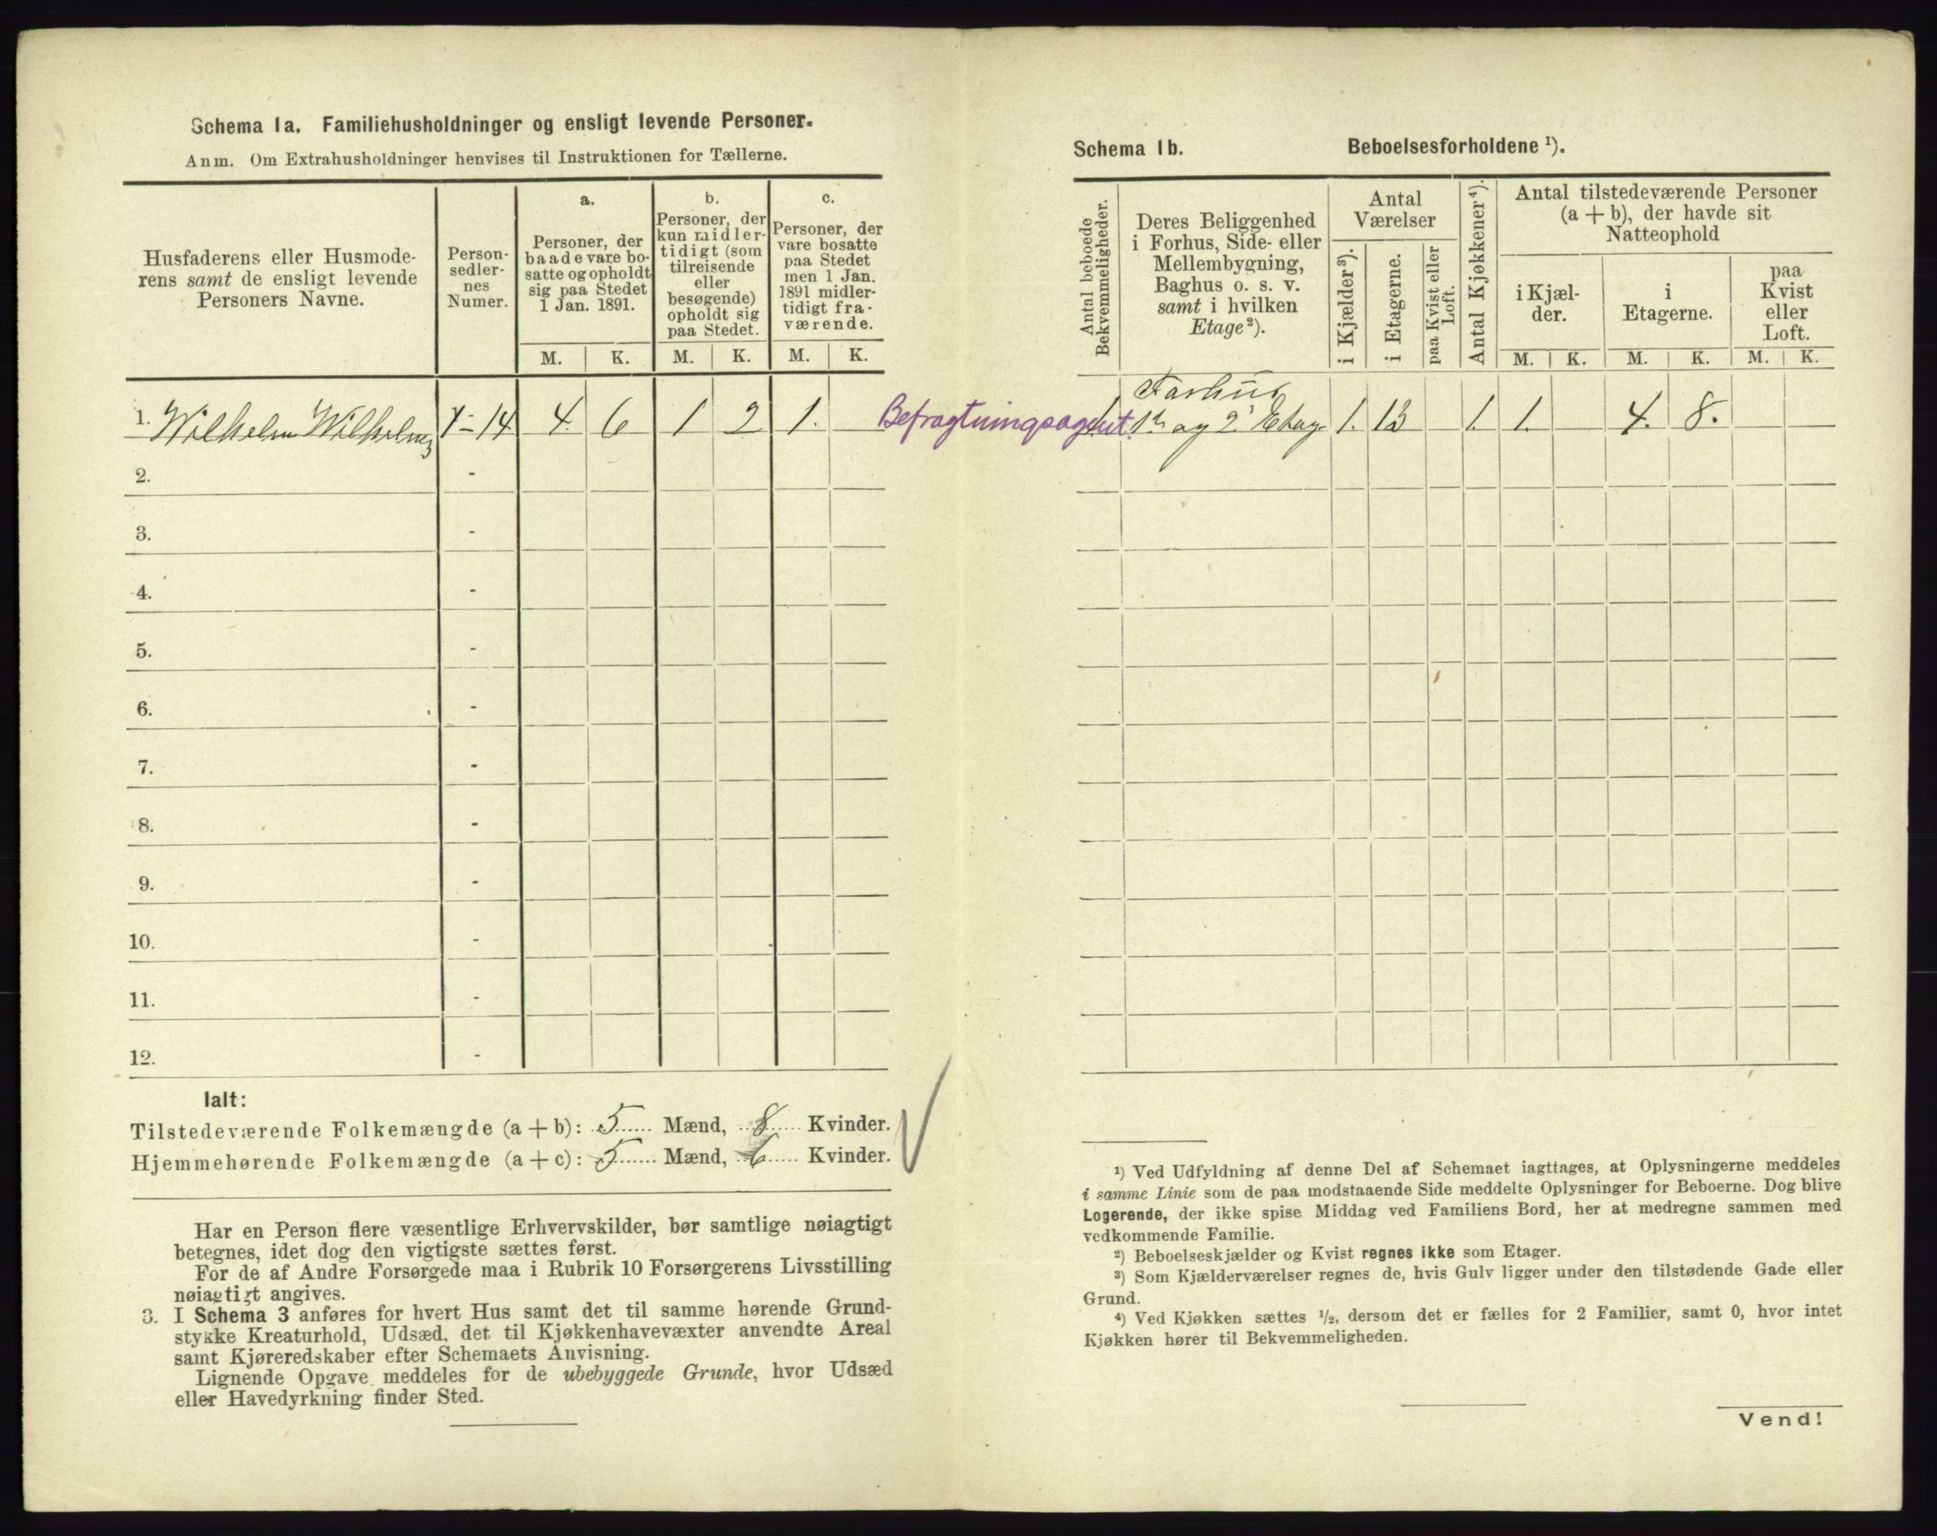 Schema 1a. Familiehusholdninger og ensligt levende Personer.
Anm. Om Extrahusholdninger henvises til Instruktionen for Tællerne.
Husfaderens eller Husmode-
rens samt de ensligt levende
Personers Navne.
Person-
sedler-
nes
Numer.
a.
Personer, der
baade vare bo-
satte og opholdt
sig paa Stedet
1 Jan. 1891.
b.
Personer, der
kun midler-
tidigt (som
tilreisende
eller
besøgende)
opholdt sig
paa Stedet.
c.
Personer, der
vare bosatte
paa Stedet
men 1 Jan.
1891 midler-
tidigt fra-
værende.
M. K. M. K. M. K.
1. Wilhelm Wilhelmsen 1-14 4 6 1 2 1.
2. -
3. -
4. -
5. -
6. -
7. -
8. -
9. -
10. -
11. -
12. -
Ialt:
Tilstedeværende Folkemængde (a + b): 5 Mænd, 8 Kvinder.
Hjemmehørende Folkemængde (a + c): 5 Mænd, 6 Kvinder.
Har en Person flere væsentlige Erhvervskilder, bør samtlige nøiagtigt
betegnes, idet dog den vigtigste sættes først.
For de af Andre Forsørgede maa i Rubrik 10 Forsørgerens Livsstilling
nøiagtigt angives.
3. I Schema 3 anføres for hvert Hus samt det til samme hørende Grund-
stykke Kreaturhold, Udsæd, det til Kjøkkenhavevæxter anvendte Areal
samt Kjøreredskaber efter Schemaets Anvisning.
Lignende Opgave meddeles for de ubebyggede Grunde, hvor Udsæd
eller Havedyrkning finder Sted.
Schema 1b. Beboelsesforholdene ¹).
Antal beboede
Bekvemmeligheder.
Deres Beliggenhed
i Forhus, Side- eller
Mellembygning,
Baghus o. s. v.
samt i hvilken
Etage ²).
Antal
Værelser
i Kjælder ³).
i Etagerne.
paa Kvist eller
Loft.
Antal Kjøkkener ⁴).
Antal tilstedeværende Personer
(a + b), der havde sit
Natteophold
i Kjæl-
der.
i
Etagerne.
paa
Kvist
eller
Loft.
M. K. M. K. M. K.
Forhus
Befragtningsagent. 1 1ste og 2 Etag. 1. 13 1. 1. 4. 8.
¹) Ved Udfyldning af denne Del af Schemaet iagttages, at Oplysningerne meddeles
i samme Linie som de paa modstaaende Side meddelte Oplysninger for Beboerne. Dog blive
Logerende, der ikke spise Middag ved Familiens Bord, her at medregne sammen med
vedkommende Familie.
²) Beboelseskjælder og Kvist regnes ikke som Etager.
³) Som Kjælderværelser regnes de, hvis Gulv ligger under den tilstødende Gade eller
Grund.
⁴) Ved Kjøkken sættes ½, dersom det er fælles for 2 Familier, samt 0, hvor intet
Kjøkken hører til Bekvemmeligheden.
Vend!